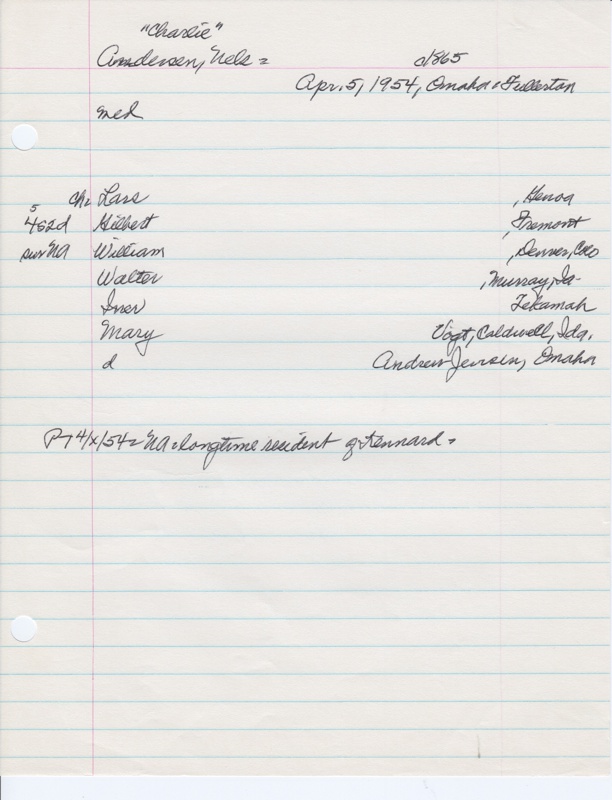 "Charlie"
Andersen, Nels = c/865
Apr. 5, 1954, Omaha = Fullerton
med
ch: Lars , Genoa
5
4s2d Hilbert , Fremont
sur NA William , Denver, Colo
Walter , Murray, Ia-
Iner Tekamah
Mary Vogt, Caldwell, Ida.
d Andrew Jensen, Omaha
PT 4/x/54 = NA = longtime resident of Kennard =